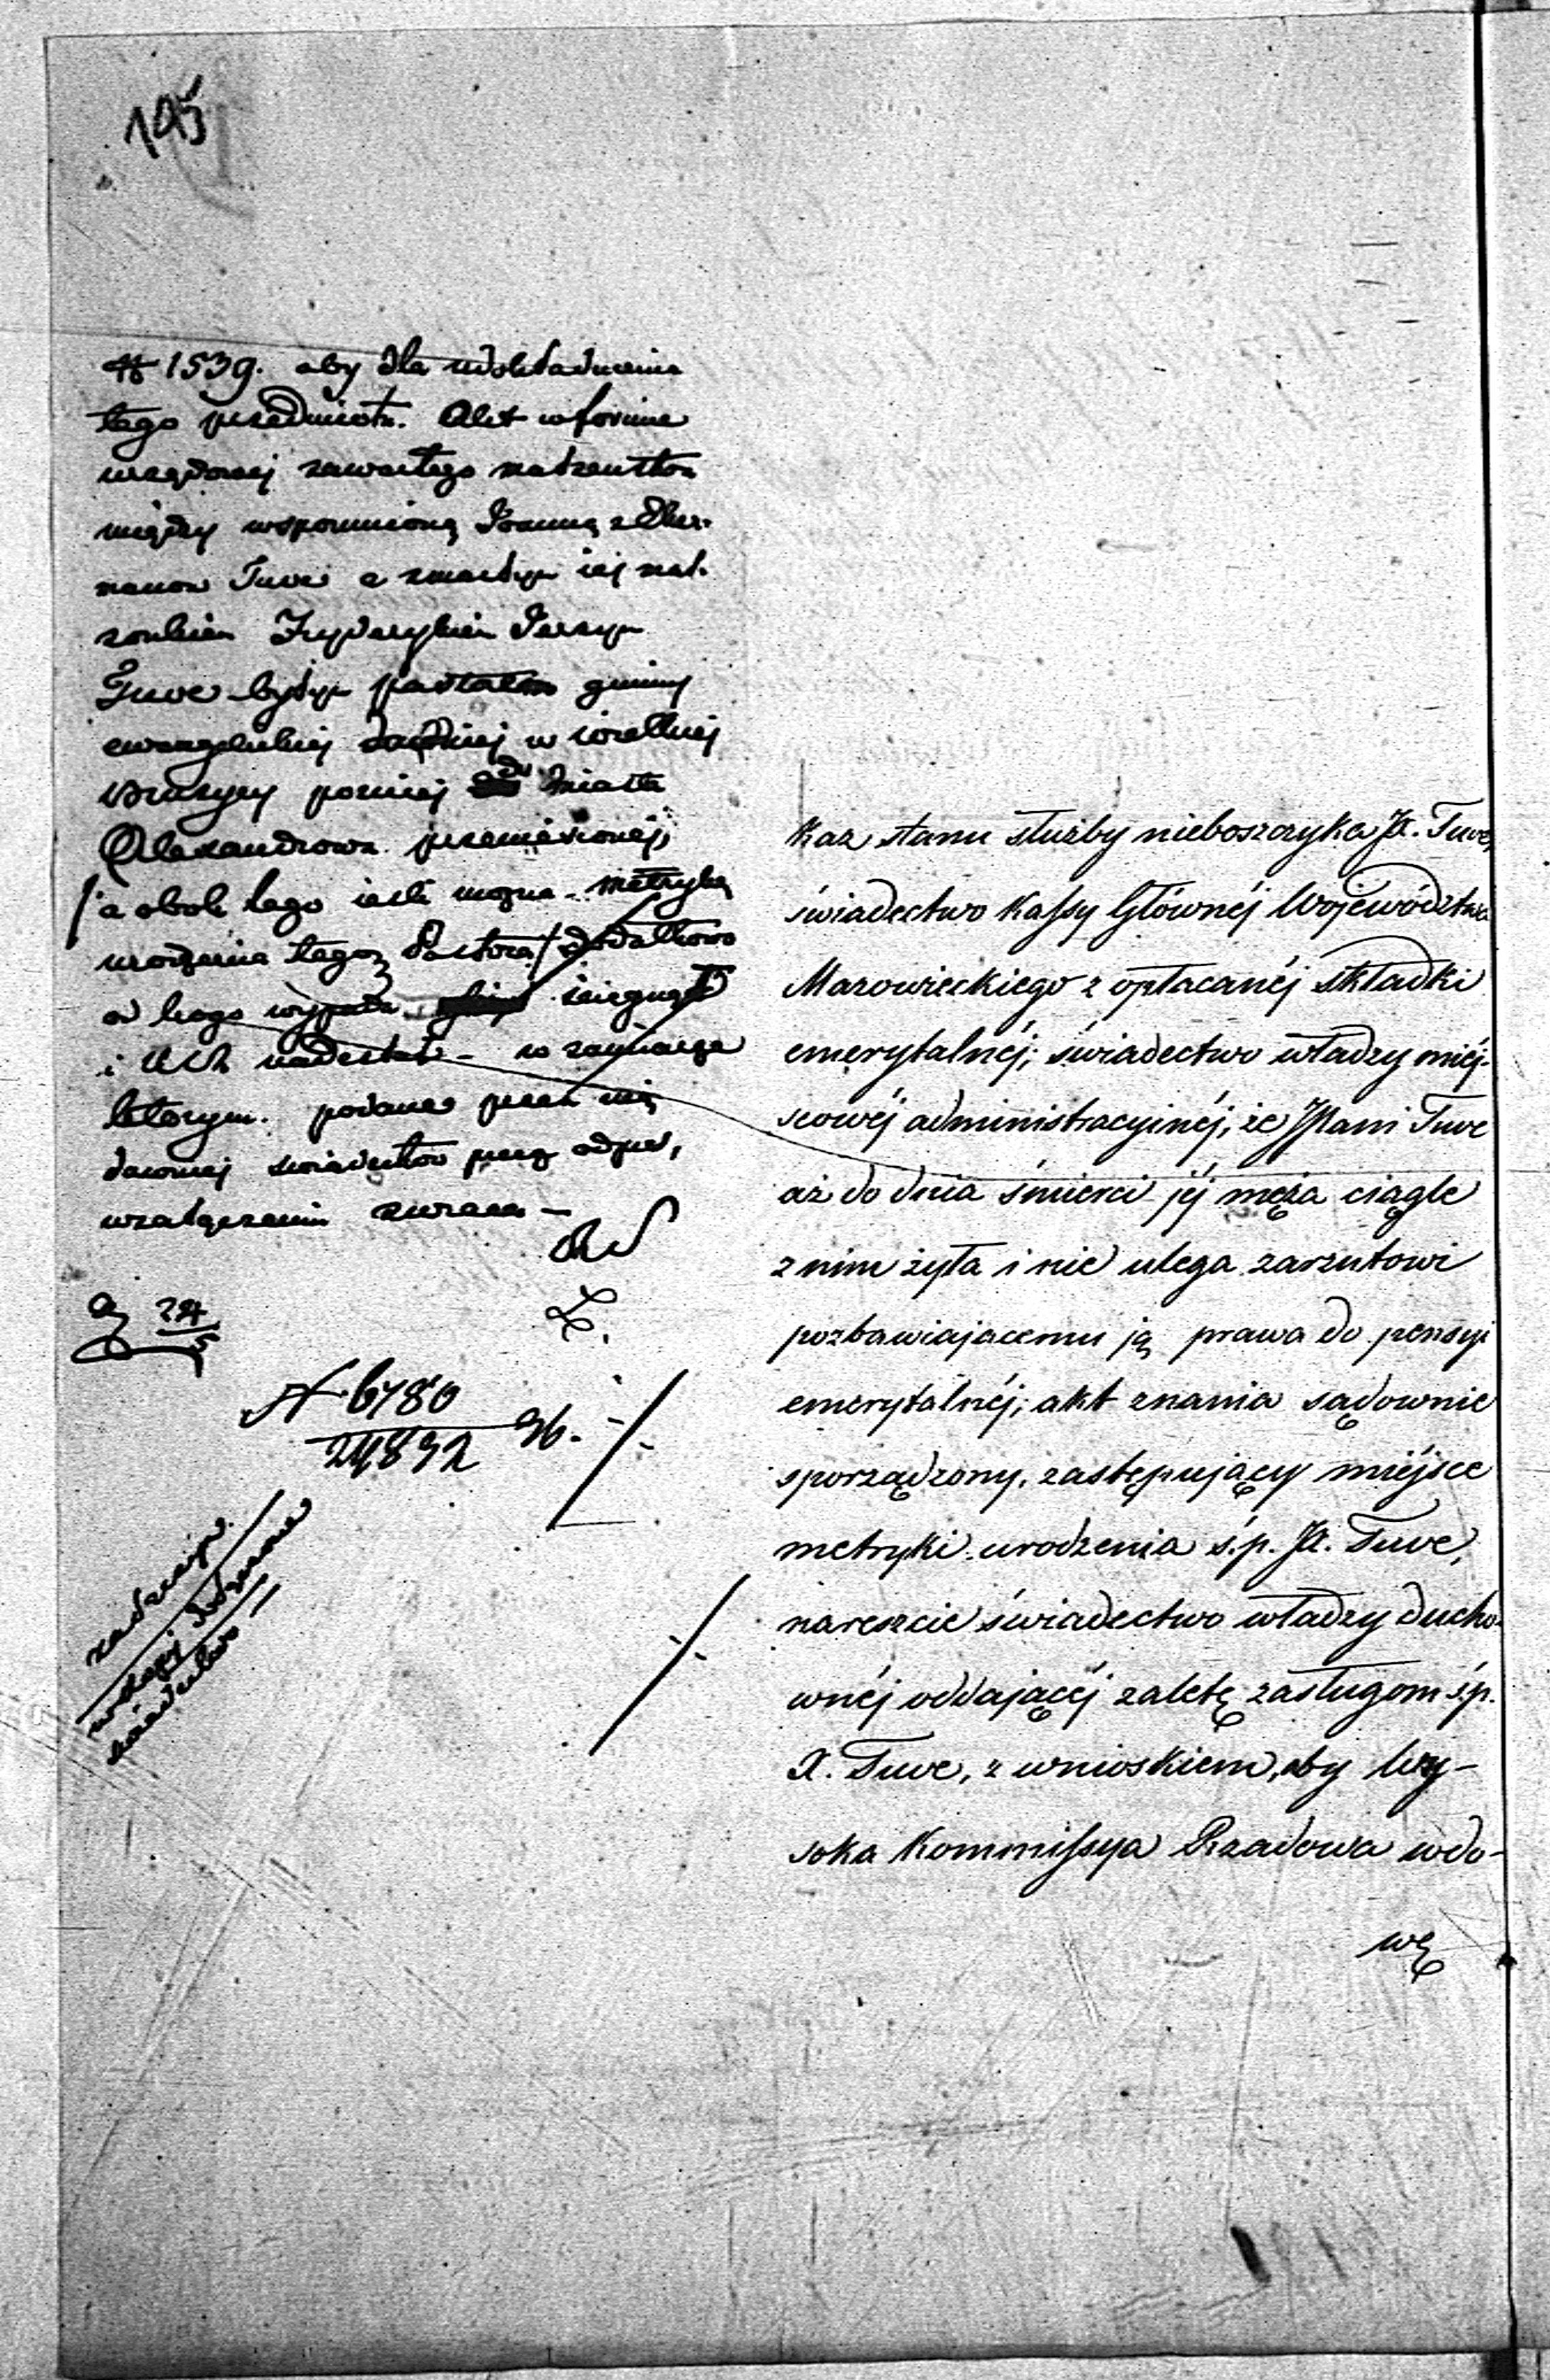 195
№ 1539. aby dla udokładnienia
tego przedmiotu. Akt w formie
urzędowej zawartego małżeństwa
między wspomnioną Joanną z
Tuve a zmarłym iej mał-
żonkiem Fryderykiem Jerzym
Tuve byłym pastorem gminy
ewangelickiej w wielkiej
Bruzycy poźniej do Miasta
Alexandrowa przeniesionej,
a obok tego ieśli można metrykę
urodzenia tegoż Pastora dodatkowo
od kogo wypada ściągnął
i nadesłał – w zamiarze
którym podane przez nią
dawniej świadectwo przy odpo-
w załączeniu zwraca –
24
5
N 6780
24832
kaz stanu służby nieboszczyka JX. Tuve,
świadectwo Kassy Głównéj Województwa
Mazowieckiego z opłacanéj składki
emerytalnéj; świadectwo władzy miéj-
scowéj administracyinéj, że JPani Tuve
aż do dnia śmierci jéj męża ciągle
z nim żyła i nie ulega zarzutowi
pozbawiającemu ją prawa do pensyi
emerytalnéj; akt znania sądownie
sporządzony, zastępujący miéjsce
metryki urodzenia ś.p. JX. Tuve,
nareszcie świadectwo władzy ducho-
wnéj oddającéj zaletę zasługom ś.p.
X. Tuve, z wnioskiem, aby Wy-
soka Kommissya Rządowa wdo-
wę